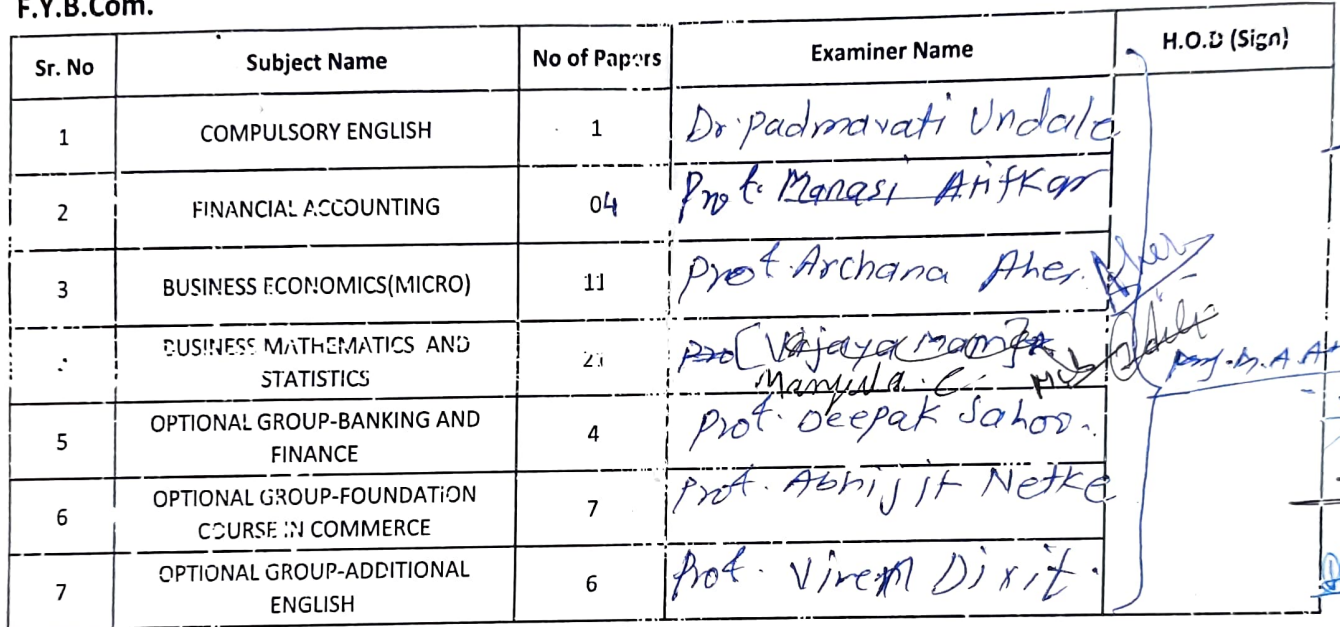 F.Y.B.Com.
Sr. No Subject Name No of Papers Examiner Name H.O.D (Sign)
1 COMPULSORY ENGLISH 1 Dr. Padmavati Undale
2 FINANCIAL ACCOUNTING 04 Prof. Manasi Atitkar
3 BUSINESS ECONOMICS(MICRO) 11 Prof. Archana Aher. Aher
BUSINESS MATHEMATICS AND
STATISTICS
Manjula. C.
OPTIONAL GROUP-BANKING AND
5 FINANCE 4 Prof. Deepak Sahoo.
OPTIONAL GROUP-FOUNDATION
6 COURSE IN COMMERCE 7 Prof. Abhijit Netke
OPTIONAL GROUP-ADDITIONAL
7 ENGLISH 6 Prof. Viren Dixit.